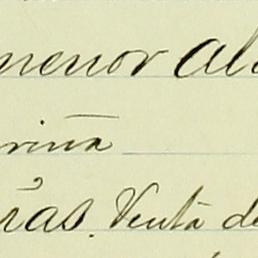 menor Al
riña
ras. Venta de